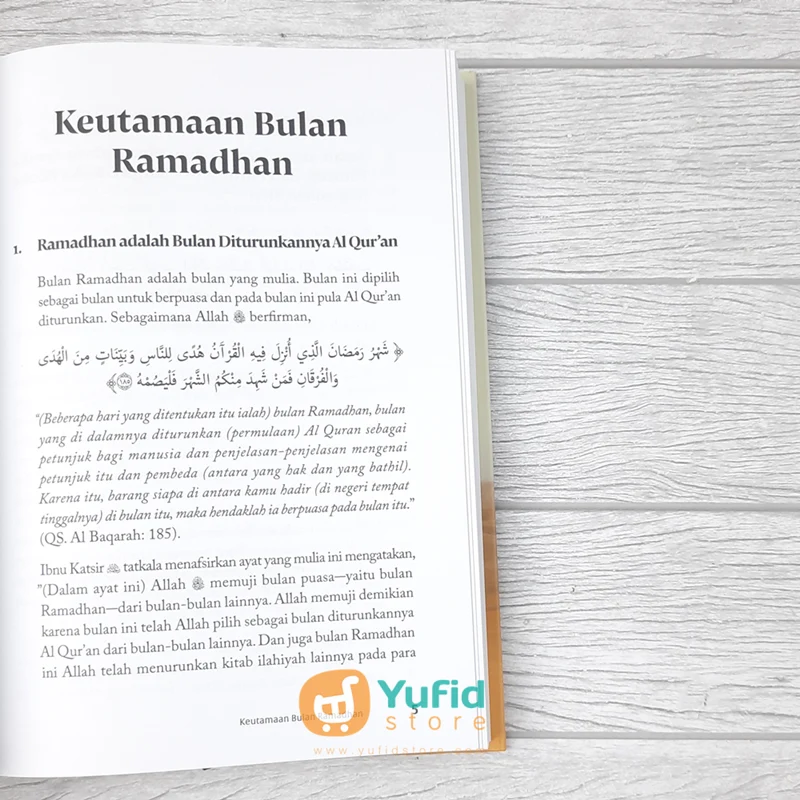 Keutamaan Bulan
Ramadhan
1. Ramadhan adalah Bulan Diturunkannya Al Qur'an
Bulan Ramadhan adalah bulan yang mulia. Bulan ini dipilih
sebagai bulan untuk berpuasa dan pada bulan ini pula Al Qur'an
diturunkan. Sebagaimana Allah ﷻ berfirman,
﴿ شَهْرُ رَمَضَانَ الَّذِي أُنْزِلَ فِيهِ الْقُرْآنُ هُدًى لِلنَّاسِ وَبَيِّنَاتٍ مِنَ الْهُدَى
وَالْفُرْقَانِ فَمَنْ شَهِدَ مِنْكُمُ الشَّهْرَ فَلْيَصُمْهُ ١٨٥ ﴾
"(Beberapa hari yang ditentukan itu ialah) bulan Ramadhan, bulan
yang di dalamnya diturunkan (permulaan) Al Quran sebagai
petunjuk bagi manusia dan penjelasan-penjelasan mengenai
petunjuk itu dan pembeda (antara yang hak dan yang bathil).
Karena itu, barang siapa di antara kamu hadir (di negeri tempat
tinggalnya) di bulan itu, maka hendaklah ia berpuasa pada bulan itu."
(QS. Al Baqarah: 185).
Ibnu Katsir tatkala menafsirkan ayat yang mulia ini mengatakan,
"(Dalam ayat ini) Allah ﷻ memuji bulan puasa—yaitu bulan
Ramadhan—dari bulan-bulan lainnya. Allah memuji demikian
karena bulan ini telah Allah pilih sebagai bulan diturunkannya
Al Qur'an dari bulan-bulan lainnya. Dan juga bulan Ramadhan
ini Allah telah menurunkan kitab ilahiyah lainnya pada para
Keutamaan Bulan Ramadhan 5
Yufid
store
www.yufidstore.com